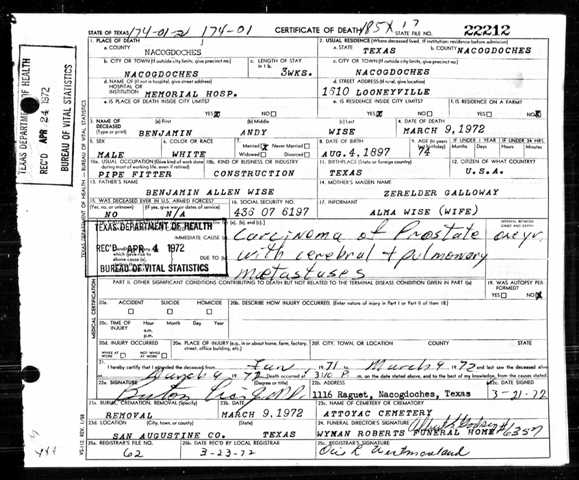 STATE OF TEXAS 174-01-2 174-01 CERTIFICATE OF DEATH 185X 17 STATE FILE NO. 22212
1. PLACE OF DEATH 2. USUAL RESIDENCE (Where deceased lived. If institution: residence before admission)
a. COUNTY NACOGDOCHES a. STATE TEXAS b. COUNTY NACOGDOCHES
b. CITY OR TOWN (If outside city limits, give precinct no.) c. LENGTH OF STAY in 1 b c. CITY OR TOWN (If outside city limits, give precinct no.)
NACOGDOCHES 3WKS. NACOGDOCHES
d. NAME OF (If not in hospital, give street address) HOSPITAL OR INSTITUTION MEMORIAL HOSP. d. STREET ADDRESS (If rural, give location) 1610 LOONEYVILLE
e. IS PLACE OF DEATH INSIDE CITY LIMITS? YES NO e. IS RESIDENCE INSIDE CITY LIMITS? YES NO f. IS RESIDENCE ON A FARM? YES NO
3. NAME OF DECEASED (Type or print) (a) First (b) Middle (c) Last 4. DATE OF DEATH
BENJAMIN ANDY WISE MARCH 9,1972
5. SEX 6. COLOR OR RACE 7. Married Never Married Widowed Divorced 8. DATE OF BIRTH 9. AGE (In years last birthday) IF UNDER 1 YEAR Months Days IF UNDER 24 HRS. Hours Min.
MALE WHITE AUG.4,1897 74
10a. USUAL OCCUPATION (Give kind of work done during most of working life, even if retired) 10b. KIND OF BUSINESS OR INDUSTRY 11. BIRTHPLACE (State or foreign country) 12. CITIZEN OF WHAT COUNTRY?
PIPE FITTER CONSTRUCTION TEXAS U.S.A.
13. FATHER'S NAME 14. MOTHER'S MAIDEN NAME
BENJAMIN ALLEN WISE ZERELDER GALLOWAY
15. WAS DECEASED EVER IN U.S. ARMED FORCES? (Yes, no, or unknown) (If yes, give war or dates of service) 16. SOCIAL SECURITY NO. 17. INFORMANT
NO N/A 436 07 6197 ALMA WISE (WIFE)
TEXAS DEPARTMENT OF HEALTH
REC'D APR 4 1972
BUREAU OF VITAL STATISTICS
IMMEDIATE CAUSE Carcinoma of Prostate
DUE TO with cerebral + pulmonary
metastases
PART II. OTHER SIGNIFICANT CONDITIONS CONTRIBUTING TO DEATH BUT NOT RELATED TO THE TERMINAL DISEASE CONDITION GIVEN IN PART I(a) 19. WAS AUTOPSY PERFORMED? YES NO
20a. ACCIDENT SUICIDE HOMICIDE 20b. DESCRIBE HOW INJURY OCCURRED. (Enter nature of injury in Part I or Part II of item 18)
20c. TIME OF INJURY Hour Month Day Year a.m. p.m.
20d. INJURY OCCURRED WHILE AT WORK NOT WHILE AT WORK 20e. PLACE OF INJURY (e.g., in or about home, farm, factory, street, office building, etc.) 20f. CITY, TOWN, OR LOCATION COUNTY STATE
21. I hereby certify that I attended the deceased from Jan 1971 to March 9 1972 and last saw
March 9 1972 Death occurred at 3:10 P m. on the date stated above, and to the best of my knowledge, from the causes stated.
22a. SIGNATURE (Degree or title) M.D. 22b. ADDRESS 1116 Raguet, Nacogdoches, Texas 22c. DATE SIGNED 3-21-72
23a. BURIAL, CREMATION, REMOVAL (Specify) 23b. DATE 23c. NAME OF CEMETERY OR CREMATORY
REMOVAL MARCH 9,1972 ATTOYAC CEMETERY
23d. LOCATION (City, town, or county) (State) 24. FUNERAL DIRECTOR'S SIGNATURE
SAN AUGUSTINE CO. TEXAS WYMAN ROBERTS FUNERAL HOME #6357
25a. REGISTRAR'S FILE NO. 25b. DATE REC'D BY LOCAL REGISTRAR 25c. REGISTRAR'S SIGNATURE
62 3-23-72
TEXAS DEPARTMENT OF HEALTH
REC'D APR 24 1972
BUREAU OF VITAL STATISTICS
MEDICAL CERTIFICATION